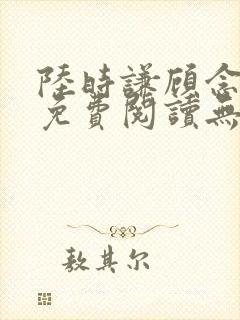 陸時謙顾念
免費閱讀無
敖其尔